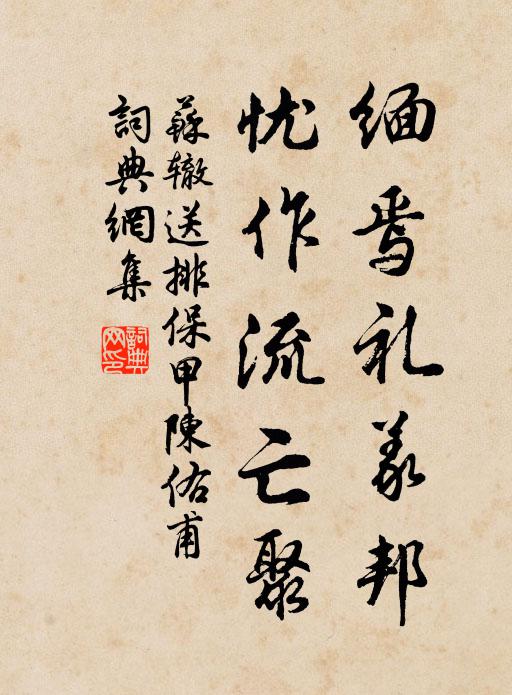 缅焉礼义邦
忧作流亡聚
蘇辙送排保甲陳佑甫
詞典網集
詞典网印